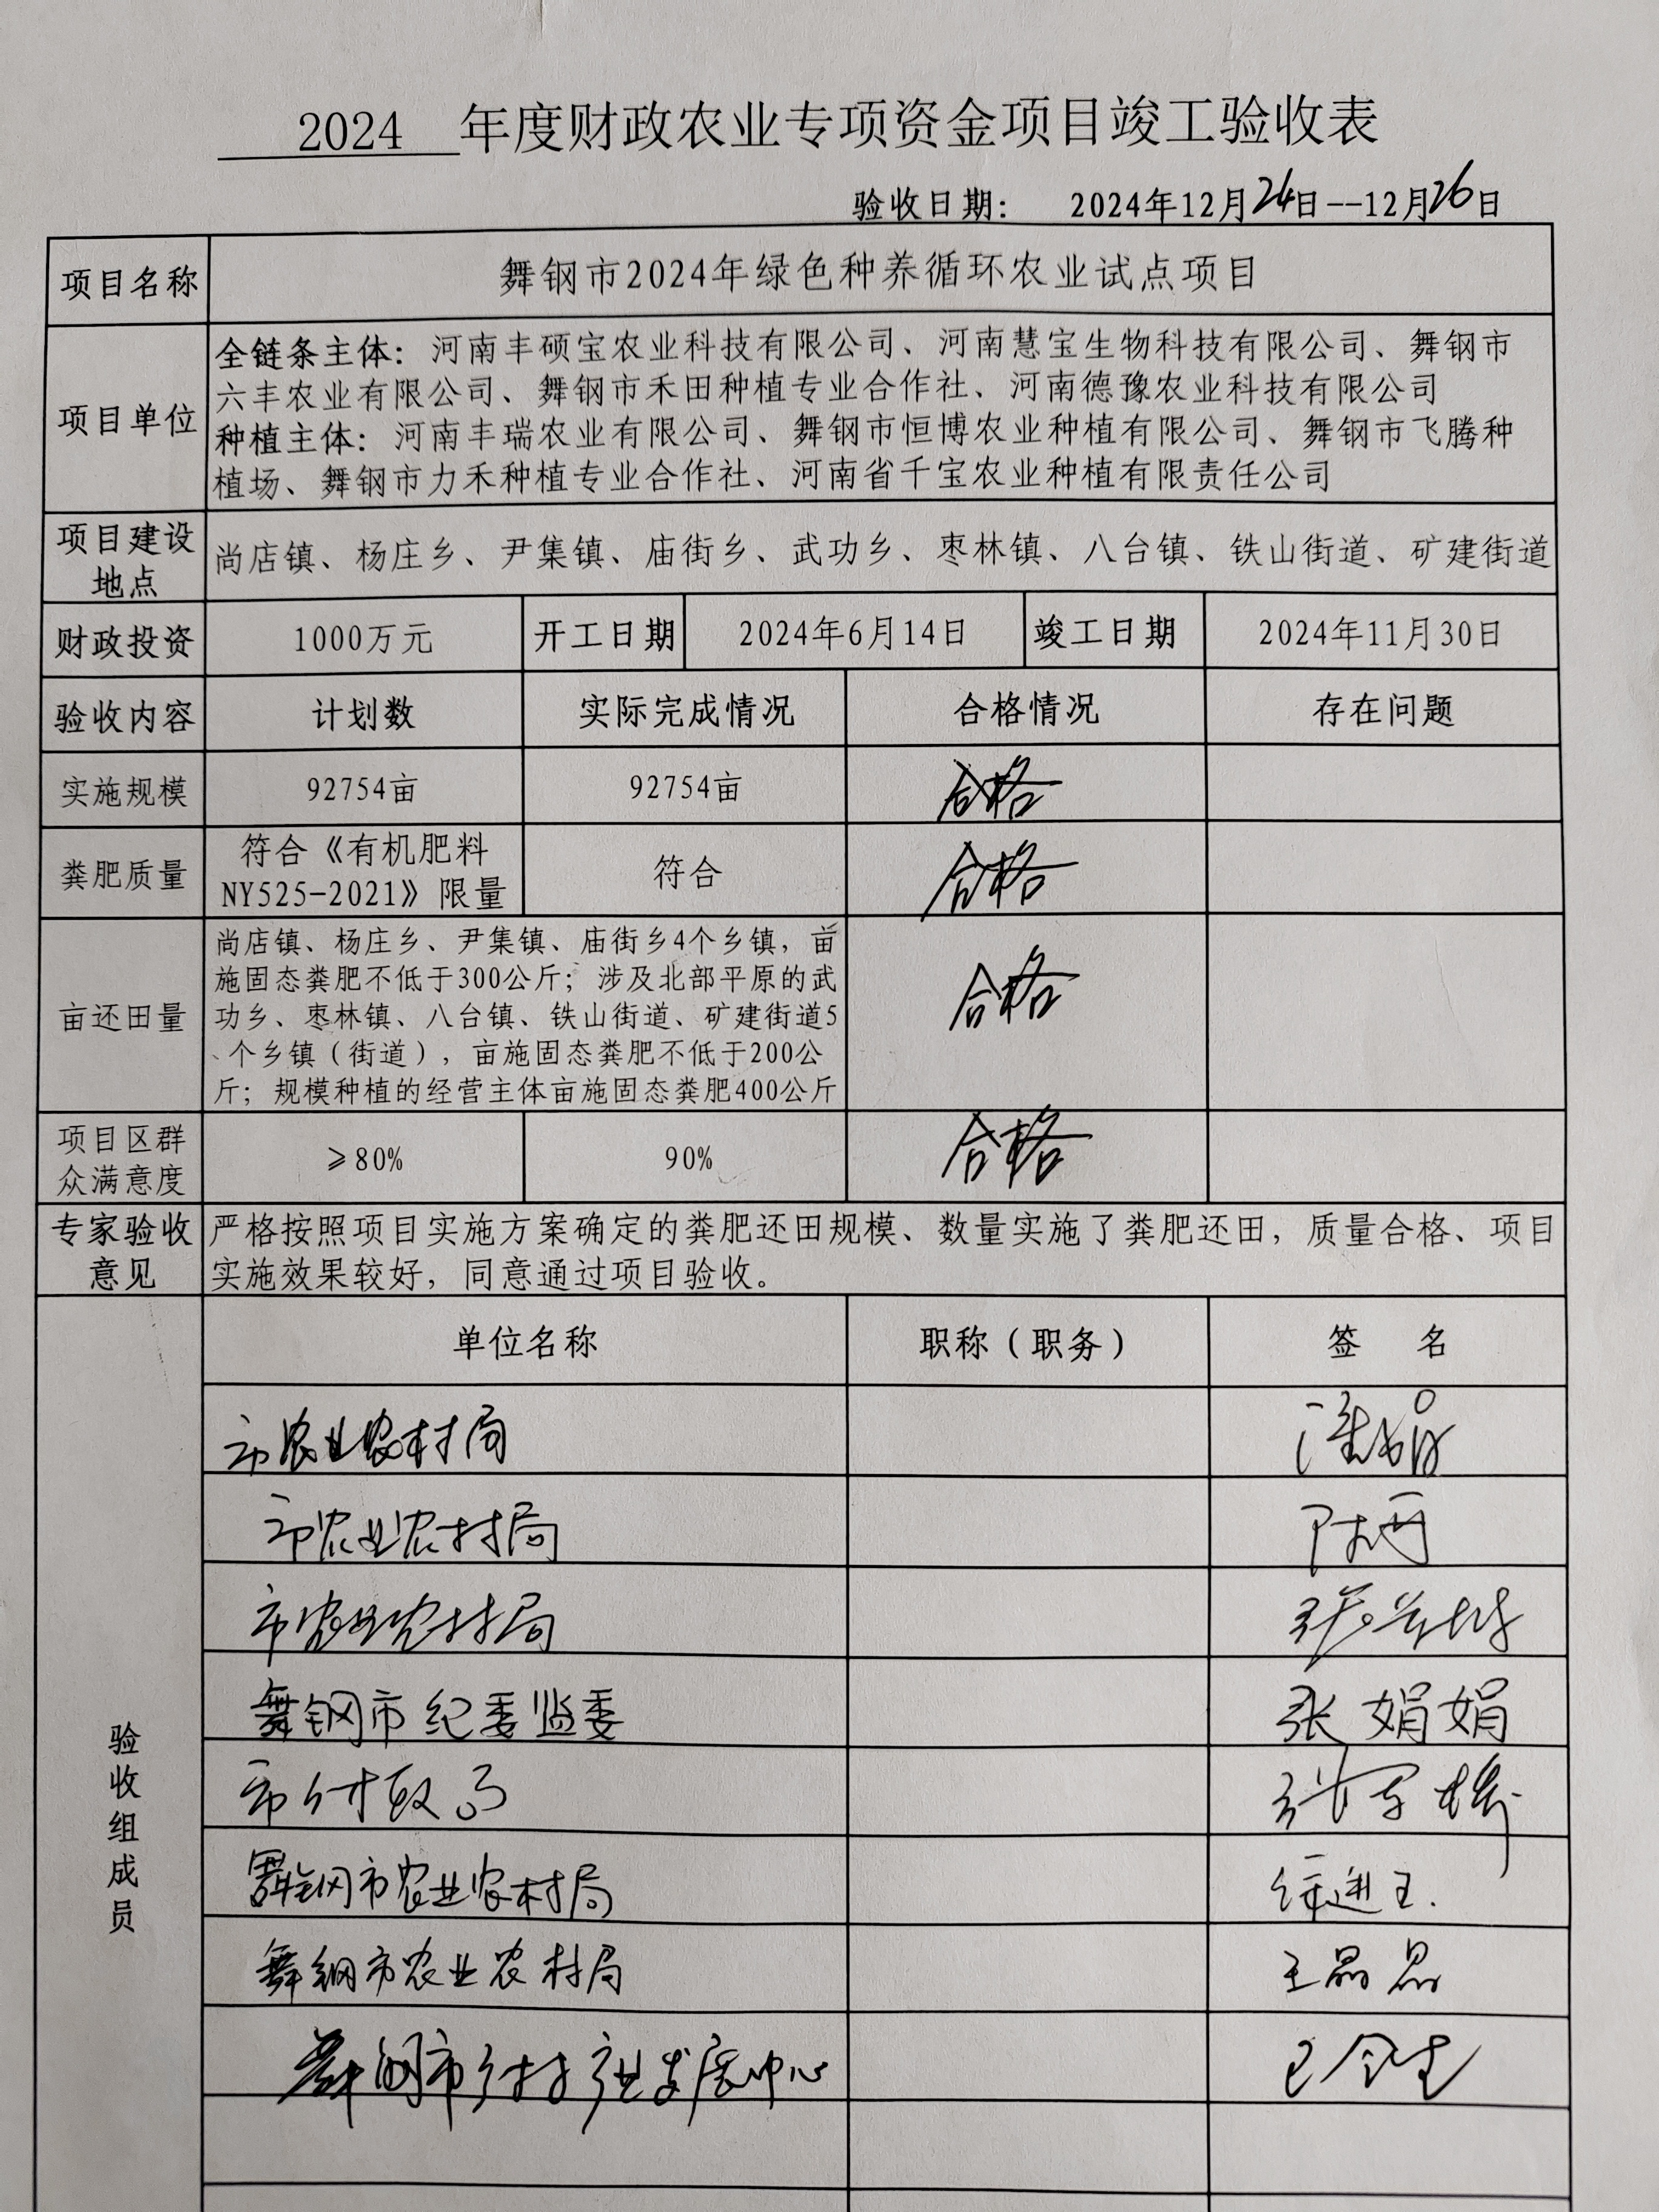 2024 年度财政农业专项资金项目竣工验收表
验收日期： 2024年12月24日--12月26日
项目名称 舞钢市2024年绿色种养循环农业试点项目
项目单位
全链条主体：河南丰硕宝农业科技有限公司、河南慧宝生物科技有限公司、舞钢市
六丰农业有限公司、舞钢市禾田种植专业合作社、河南德豫农业科技有限公司
种植主体：河南丰瑞农业有限公司、舞钢市恒博农业种植有限公司、舞钢市飞腾种
植场、舞钢市力禾种植专业合作社、河南省千宝农业种植有限责任公司
项目建设
地点
尚店镇、杨庄乡、尹集镇、庙街乡、武功乡、枣林镇、八台镇、铁山街道、矿建街道
财政投资 1000万元 开工日期 2024年6月14日 竣工日期 2024年11月30日
验收内容 计划数 实际完成情况 合格情况 存在问题
实施规模 92754亩 92754亩 合格
粪肥质量
符合《有机肥料
NY525-2021》限量
符合 合格
亩还田量
尚店镇、杨庄乡、尹集镇、庙街乡4个乡镇，亩
施固态粪肥不低于300公斤；涉及北部平原的武
功乡、枣林镇、八台镇、铁山街道、矿建街道5
个乡镇（街道），亩施固态粪肥不低于200公
斤；规模种植的经营主体亩施固态粪肥400公斤
合格
项目区群
众满意度
≥80% 90% 合格
专家验收
意见
严格按照项目实施方案确定的粪肥还田规模、数量实施了粪肥还田，质量合格、项目
实施效果较好，同意通过项目验收。
验收组成员
单位名称 职称（职务） 签 名
市农业农村局
市农业农村局
市农业农村局
舞钢市纪委监委 张娟娟
市财政局
舞钢市农业农村局
舞钢市农业农村局 王晶晶
舞钢市乡村产业发展中心